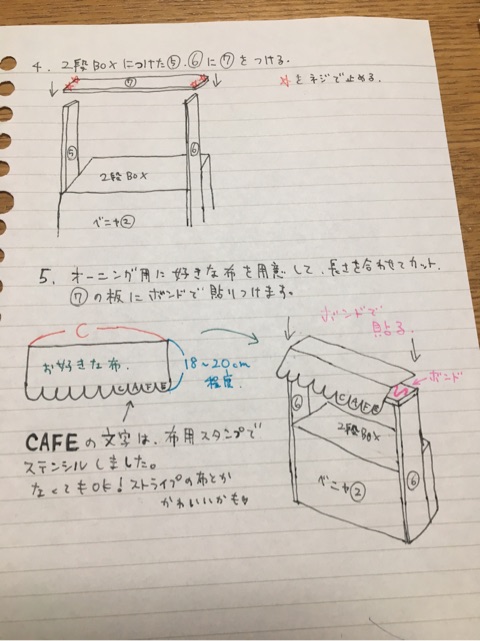 4. 2段BOXにつけた⑤.⑥に⑦をつける.
☆をネジで止める.
⑦
⑤
⑥
2段BOX
ベニヤ②
5. オーニング用に好きな布を用意して、長さを合わせてカット.
⑦の板にボンドで貼りつける。
C
お好きな布.
CAFE
18~20cm
程度.
ボンドで
貼る
ボンド
CAFE
⑥
2段BOX
ベニヤ②
⑥
CAFEの文字は、布用スタンプで
ステンシルしました。
なくてもOK!ストライプの布とか
かわいいかも